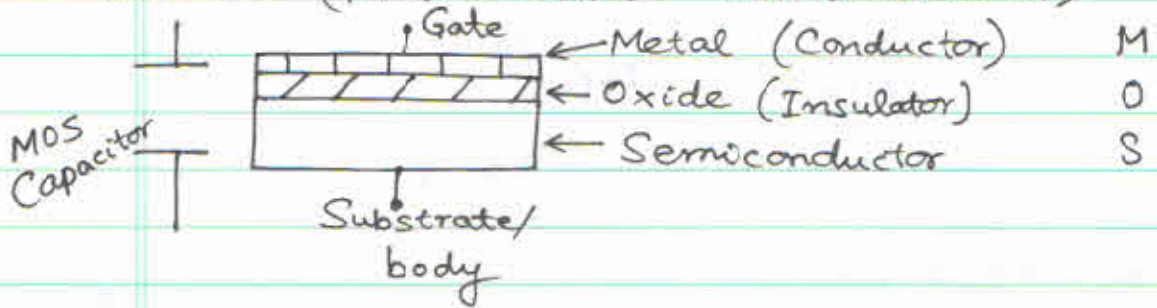 Gate
Metal (Conductor) M
Oxide (Insulator) O
Semiconductor S
MOS
Capacitor
Substrate/
body